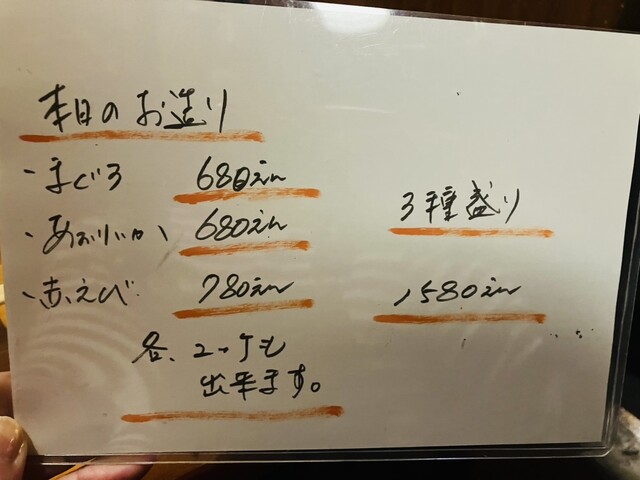 本日のお造り
・まぐろ 680えん
・あおりいか 680えん
・赤えび 780えん
3種盛り
1580えん
各、2ヶも
出来ます。